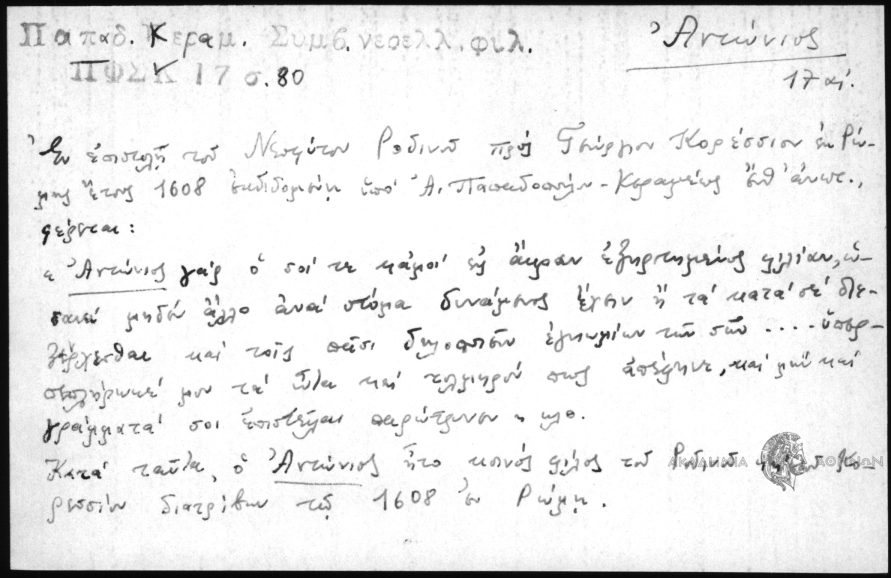 Παπαδ. Κεραμ. Συμβ. νεοελλ. φιλ.
ΠΦΣΚ 17 σ. 80
Ἀντώνιος
17 αἰ.
Ἐν ἐπιστολῇ τοῦ Νεοφύτου Ροδινοῦ πρὸς Γεώργιον Κορέσσιον ἐκ Ρώ-
μης ἔτους 1608 ἐκδιδομένῃ ὑπὸ Ἀ. Παπαδοπούλου-Κεραμέως ἔνθ' ἀνωτ.,
φέρεται:
« Ἀντώνιος γὰρ ὁ σοί τε κἀμοὶ εἰς ἄκραν ἐξηρτημένος φιλίαν, ὡ-
σανεὶ μηδὲν ἄλλο ἀνὰ στόμα δυνάμενος ἔχειν ἢ τὰ κατὰ σὲ διε-
ξέρχεσθαι καὶ τοῖς πᾶσι δηλοποιεῖν ἐγκωμίων τῶν σῶν .... ὑπερ-
πεπλήρωκέ μου τὰ ὦτα καὶ τολμηρόν πως ἀπέφηνε, καὶ μὴν καὶ
γράμματά σοι ἐπιστεῖλαι παρώτρυνεν » κλπ.
Κατὰ ταῦτα, ὁ Ἀντώνιος ἦτο κοινὸς φίλος τοῦ Ροδινοῦ καὶ τοῦ Κο-
ρεσσίου διατρίβων τῷ 1608 ἐν Ρώμῃ.
ΑΚΑΔΗΜΙΑ ΑΘΗΝΩΝ